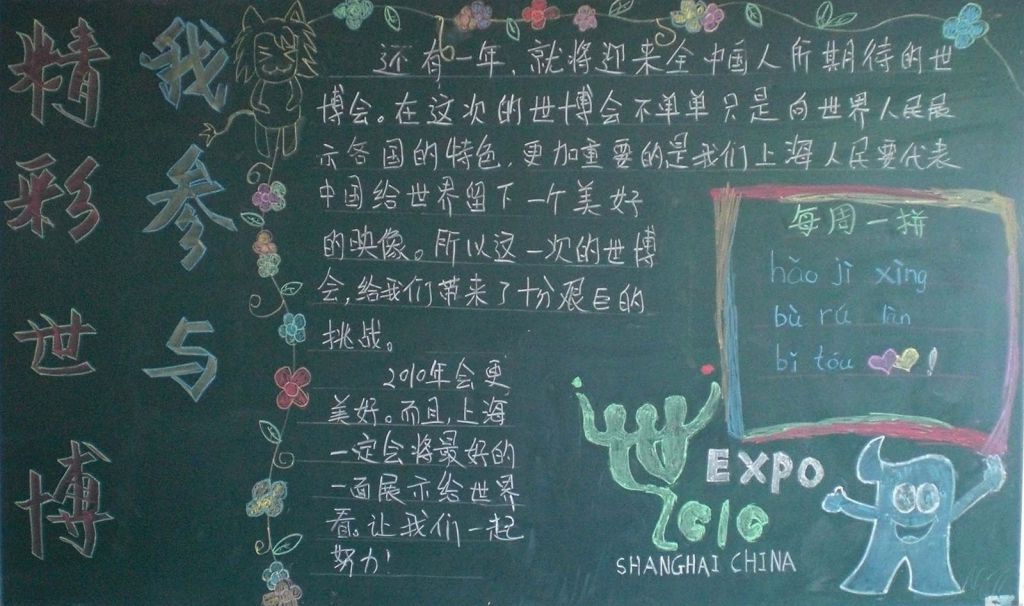 精彩世博
我参与
还有一年，就将迎来全中国人所期待的世
博会。在这次的世博会不单单只是向世界人民展
示各国的特色，更加重要的是我们上海人民要代表
中国给世界留下一个美好
的映像。所以这一次的世博
会，给我们带来了十分艰巨的
挑战。
2010年会更
美好。而且，上海
一定会将最好的
一面展示给世界
看。让我们一起
努力！
每周一拼
hǎo jì xìng
bù rú làn
bǐ tóu !
EXPO
2010
SHANGHAI CHINA